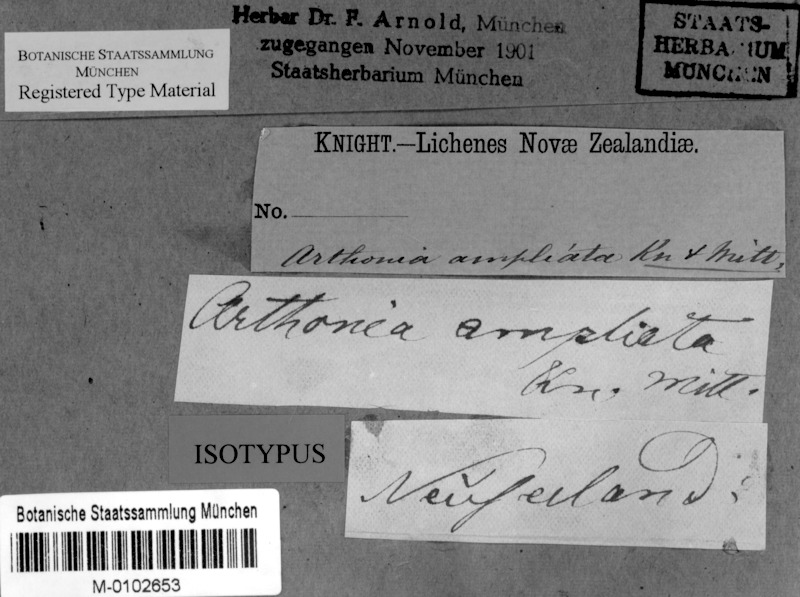 Herbar Dr. F. Arnold, München
zugegangen November 1901
Staatsherbarium München
STAATS-
HERBARIUM
MÜNCHEN
BOTANISCHE STAATSSAMMLUNG
MÜNCHEN
Registered Type Material
KNIGHT.—Lichenes Novæ Zealandiæ.
No.
Arthonia ampliata Kn & Mitt.
Arthonia ampliata
Kn. Mitt.
ISOTYPUS
Neuseeland.
Botanische Staatssammlung München
M-0102653